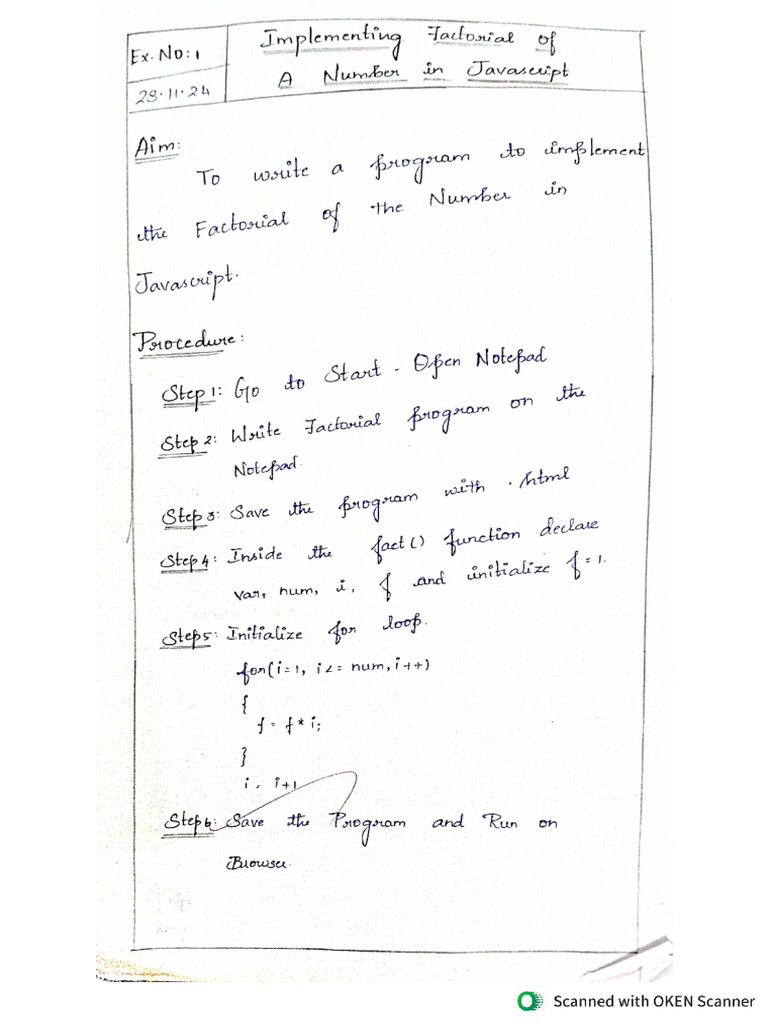 Ex. No: 1
Implementing Factorial of
A Number in Javascript
28.11.24
Aim:
To write a program to implement
the Factorial of the Number in
Javascript.
Procedure:
Step 1: Go to Start - Open Notepad
Step 2: Write Factorial program on the
Notepad.
Step 3: Save the program with .html
Step 4: Inside the fact() function declare
var, num, i, f and initialize f = 1.
Step 5: Initialize for loop.
for(i=1, i<= num, i++)
{
f = f * i;
}
i = i+1
Step 6: Save the Program and Run on
Browser.
Scanned with OKEN Scanner